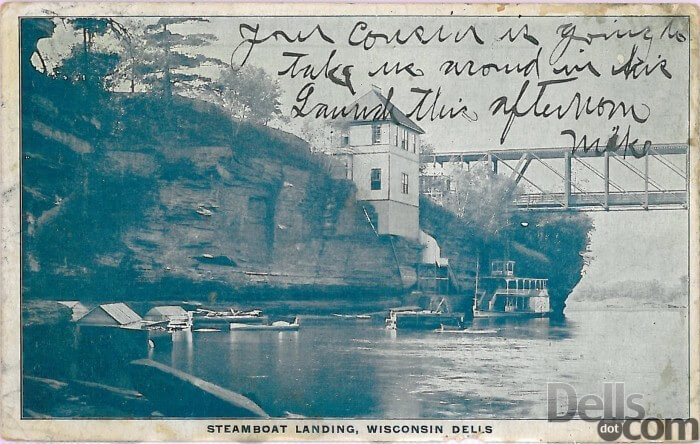 Your Cousin is going to
take us around in his
Launch this afternoon
Mike
STEAMBOAT LANDING, WISCONSIN DELLS
Dells
dot com